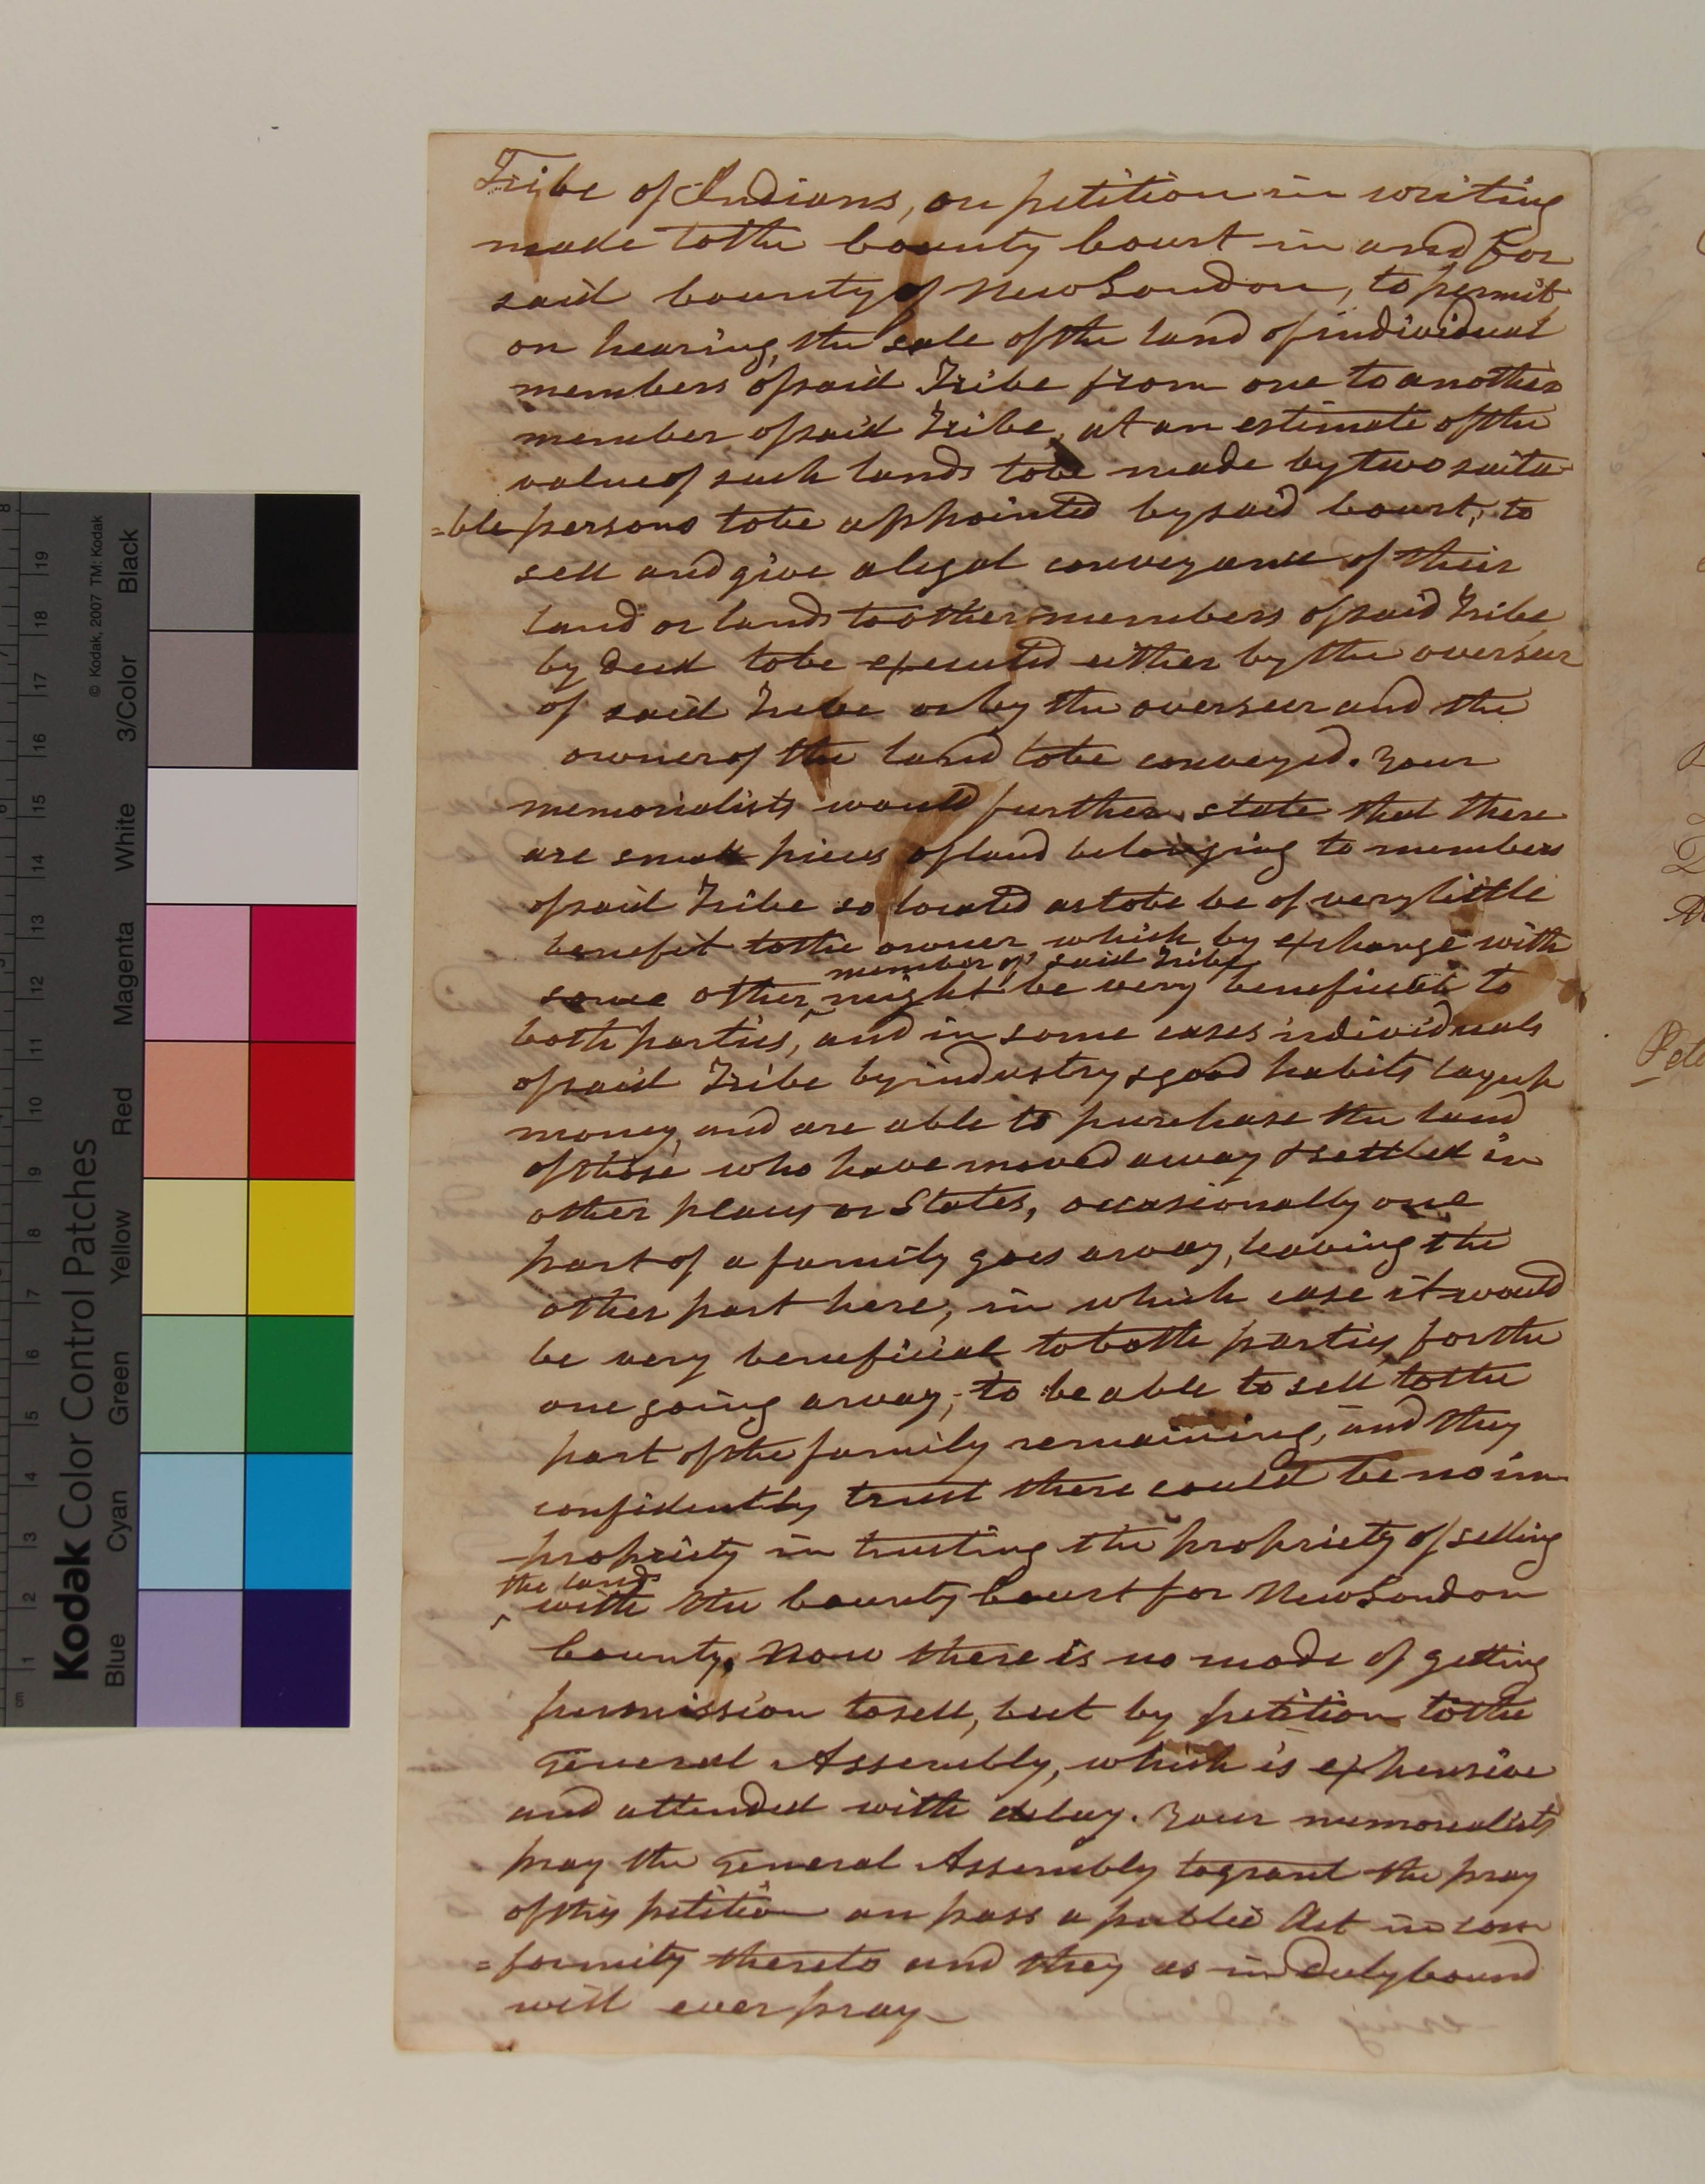 Tribe of Indians, on petition in writing
made to the County Court in and for
said County of New London, to permit
on hearing, the sale of the land of individual
members of said Tribe from one to another
member of said Tribe, at an estimate of the
value of such lands to be made by two suita-
=ble persons to be appointed by said Court, to
sell and give a legal conveyance of their
land or lands to other members of said Tribe
by deed to be executed either by the overseer
of said Tribe or by the overseer and the
owner of the land to be conveyed. Your
memorialists would further state that there
are small pieces of land belonging to members
of said Tribe so located as to be be of very little
benefit to the owner which by exchange with
member of said Tribe
some other ‸ might be very beneficial to
both parties, and in some cases individuals
of said Tribe by industry & good habits lay up
money, and are able to purchase the land
of those who have moved away & settled in
other places or States, occasionally one
part of a family goes away, leaving the
other part here, in which case it would
be very beneficial to both parties, for the
one going away, to be able to sell to the
part of the family remaining, and they
confidently trust there could be no im-
-propriety in trusting the propriety of selling
the lands
‸ with the County Court for New London
County. Now there is no mode of getting
permission to sell, but by petition to the
General Assembly, which is expensive
and attended with delay. Your memorialists
pray the General Assembly to grant the pray
of this petition an pass a public Act in con
=formity thereto and they as in duly bound
will ever pray—
Pete
Kodak Color Control Patches
© Kodak, 2007 TM: Kodak
Blue Cyan Green Yellow Red Magenta White 3/Color Black
cm 1 2 3 4 5 6 7 8 9 10 11 12 13 14 15 16 17 18 19